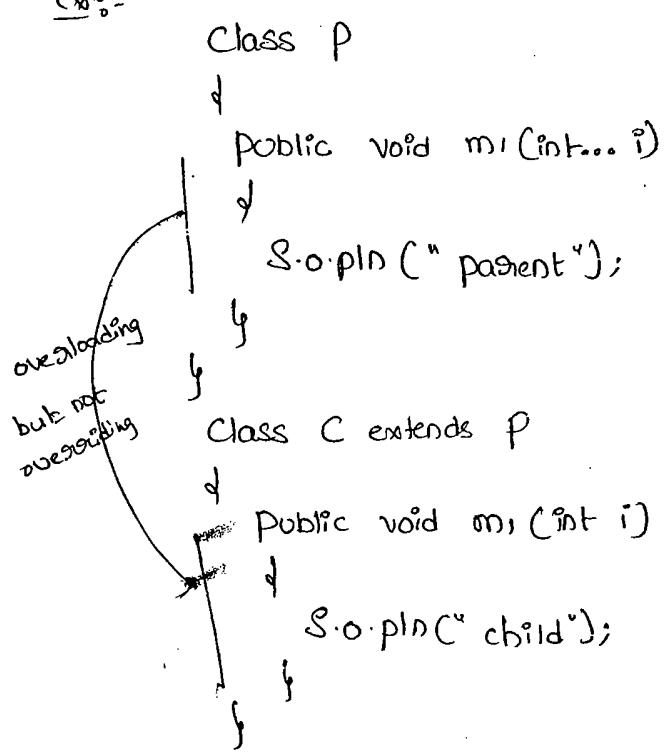 Ex:-
Class P
{
public void m1 (int... i)
{
S.o.pln (" parent");
}
}
overloading
but not
overriding
Class C extends P
{
public void m1 (int i)
{
S.o.pln (" child");
}
}